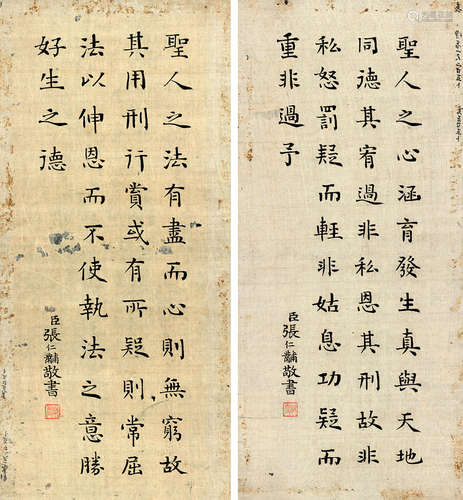 聖人之心涵育發生真與天地
同德其宥過非私恩其刑故非
私怒罰疑而輕非姑息功疑而
重非過予
臣張仁黼敬書
聖人之法有盡而心則無窮故
其用刑行賞或有所疑則常屈
法以伸恩而不使執法之意勝
好生之德
臣張仁黼敬書